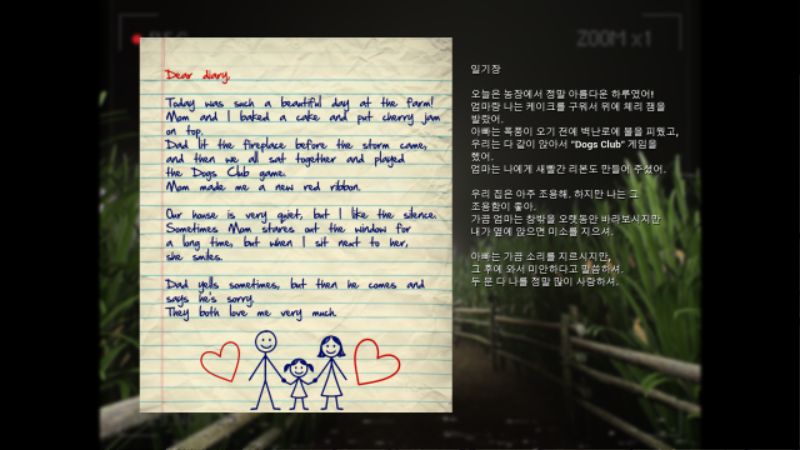 REC
ZOOM x1
Dear diary,
Today was such a beautiful day at the farm!
Mom and I baked a cake and put cherry jam
on top.
Dad lit the fireplace before the storm came,
and then we all sat together and played
the Dogs Club game.
Mom made me a new red ribbon.
Our house is very quiet, but I like the silence.
Sometimes Mom stares out the window for
a long time, but when I sit next to her,
she smiles.
Dad yells sometimes, but then he comes and
says he's sorry.
They both love me very much.
일기장
오늘은 농장에서 정말 아름다운 하루였어!
엄마랑 나는 케이크를 구워서 위에 체리 잼을
발랐어.
아빠는 폭풍이 오기 전에 벽난로에 불을 피웠고,
우리는 다 같이 앉아서 "Dogs Club" 게임을
했어.
엄마는 나에게 새빨간 리본도 만들어 주셨어.
우리 집은 아주 조용해. 하지만 나는 그
조용함이 좋아.
가끔 엄마는 창밖을 오랫동안 바라보시지만
내가 옆에 앉으면 미소를 지으셔.
아빠는 가끔 소리를 지르시지만,
그 후에 와서 미안하다고 말씀하셔.
두 분 다 나를 정말 많이 사랑하셔.